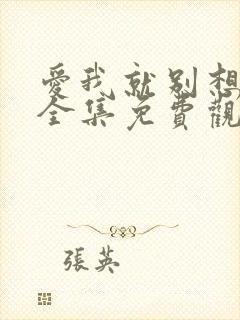 愛我就別想
全集免費觀
張英